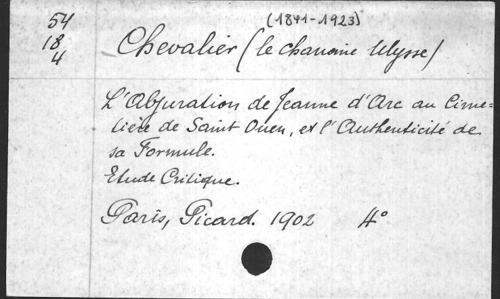 54
18
4
(1841-1923)
Chevalier (le chanoine Ulysse)
L'Abjuration de Jeanne d'Arc au Cime=
tière de Saint Ouen, et l'Authenticité de
sa Formule.
Etude Critique.
Paris, Picard. 1902 4°